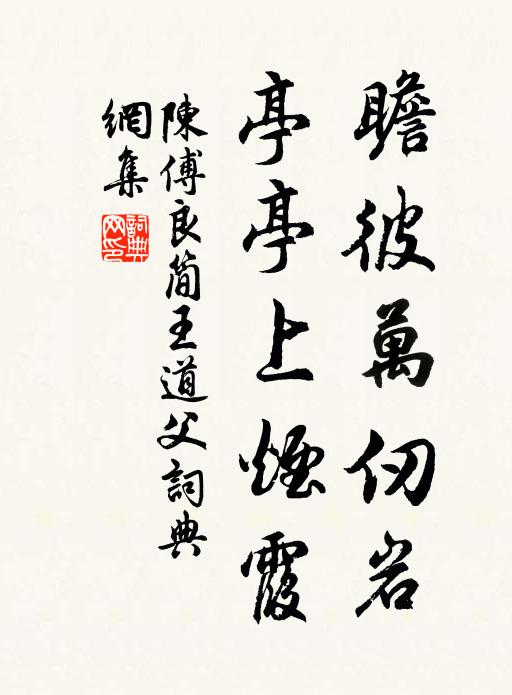 瞻彼萬仞岩
亭亭上煙霞
陳傅良簡王道父詞典
網集
詞典
网印